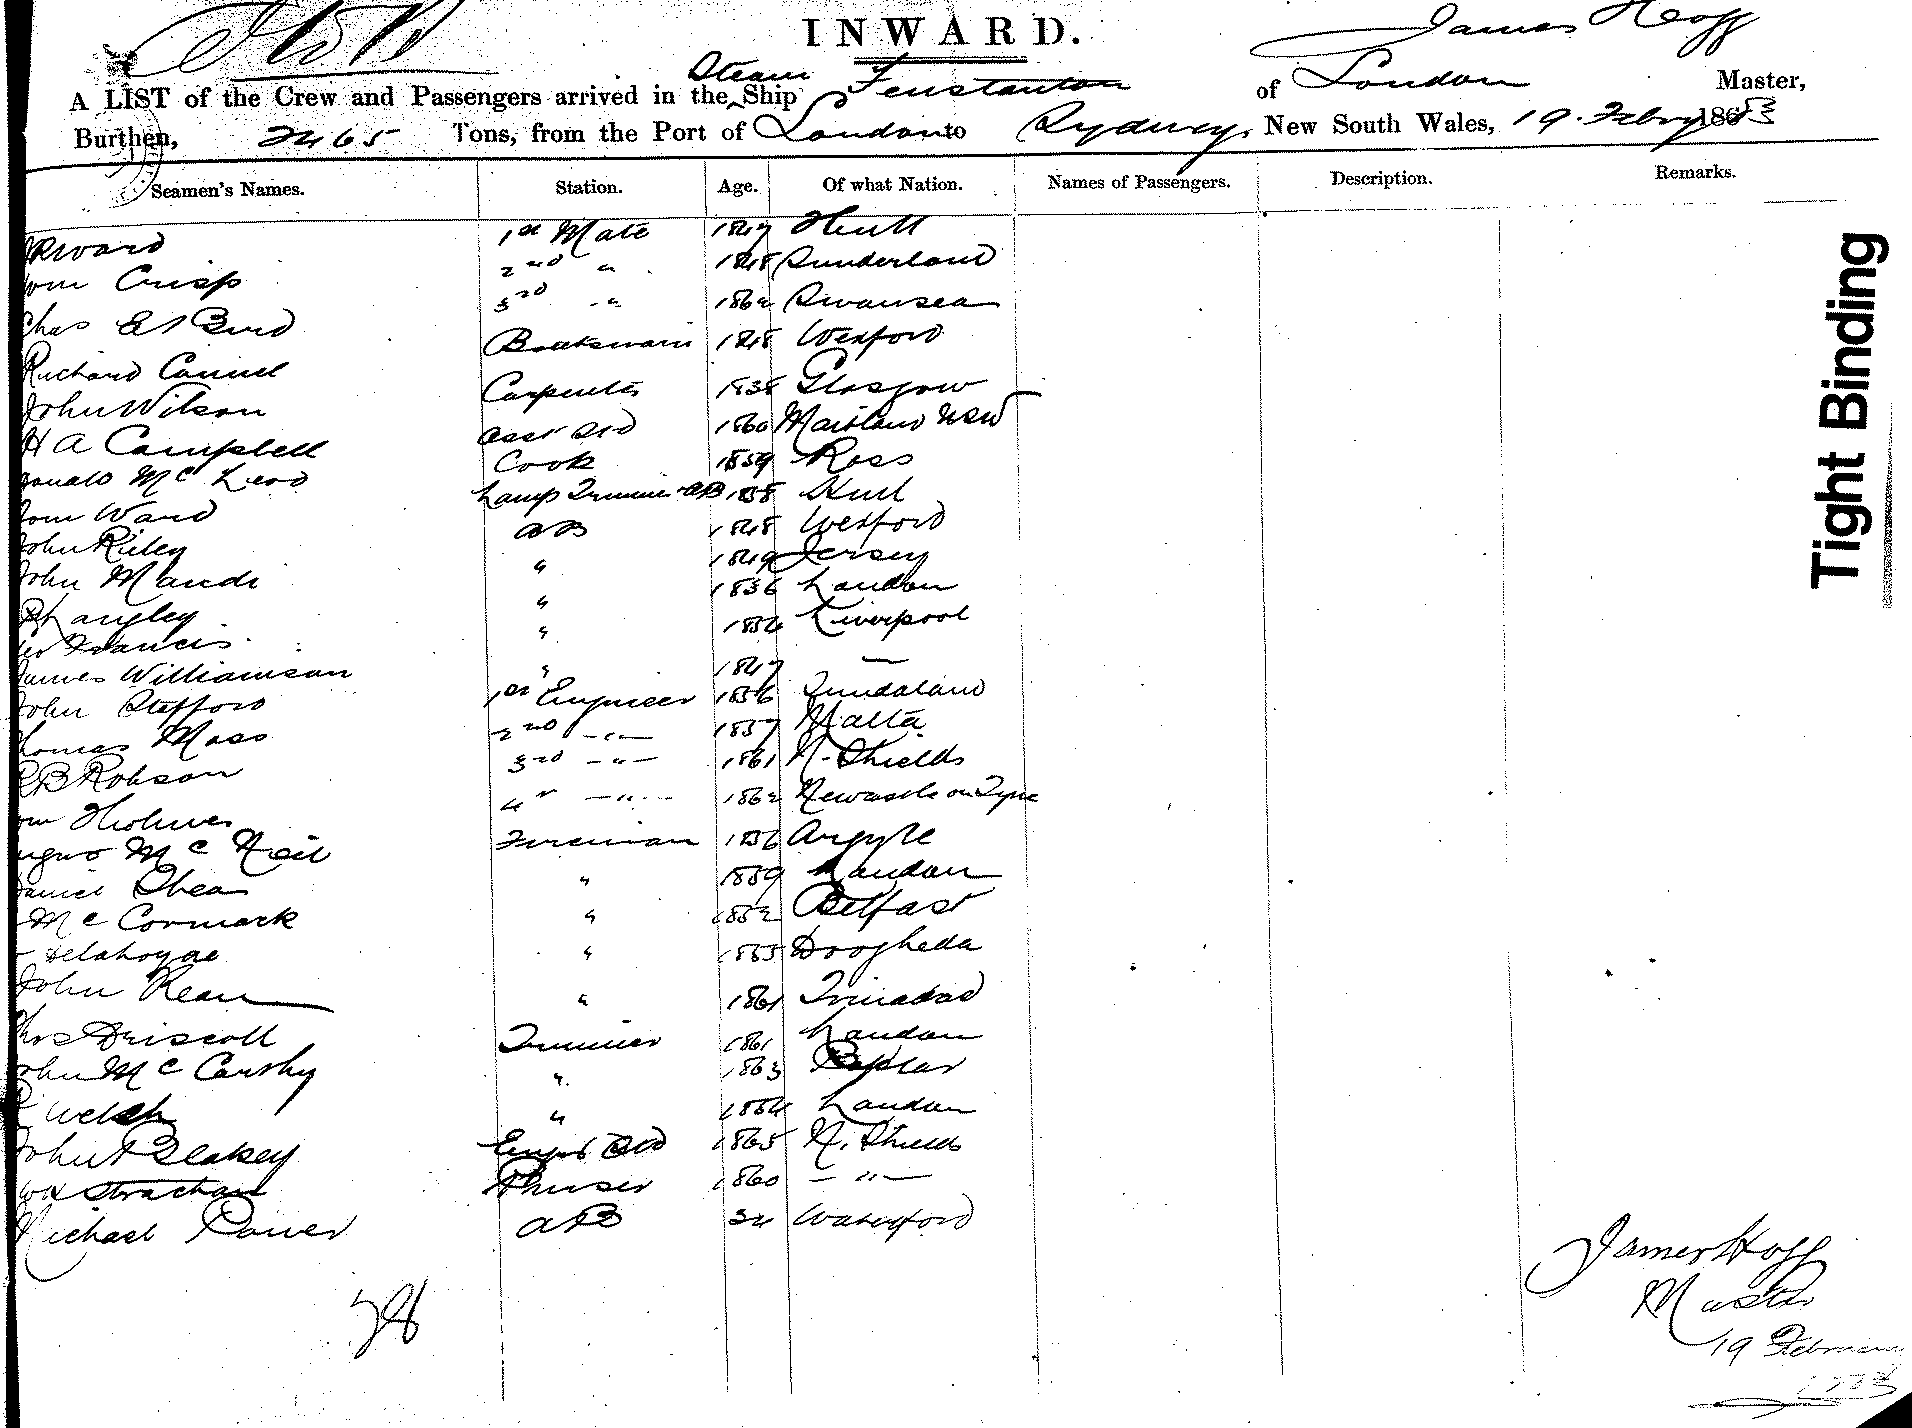 INWARD.
James Hogg
A LIST of the Crew and Passengers arrived in the Steam Ship Fenstanton of London Master,
Burthen, 2465 Tons, from the Port of London to Sydney, New South Wales, 19 Febry 1883
Seamen's Names. Station. Age. Of what Nation. Names of Passengers. Description. Remarks.
Ward 1st Mate 1847 Hull
Crisp 2nd " 1848 Sunderland
Chas Bird 3rd " 1862 Swansea
Richard Connel Boatswain 1848 Wexford
John Wilson Carpenter 1838 Glasgow
H A Campbell Asst Std 1860 Maitland NSW
Donald Mc Leod Cook 1859 Ross
Tom Ward Lamp Trimmer AB 1858 Hull
John Riley AB 1848 Wexford
John " 1849 Jersey
Langley " 1836 London
Francis " Liverpool
James Williamson " 1847 —
John Stafford 1st Engineer 1856 Sundaland
Thomas Moss 2nd -"- 1857 Malta
R B Robson 3rd -"- 1861 N. Shields
Holmes 4th -"- 1862 Newcastle on Tyne
Mc Neil Fireman 1856 Argyle
Daniel Shea " 1859 London
Mc Cormack " 1852 Belfast
Delahoyde " 1855 Drogheda
John Kean " 1861 Trinadad
Thos Driscoll Trimmer 1861 London
John Mc Carthy " 1863 Poplar
Welsh " London
John Blakey Engrs Std 1865 N. Shields
Strachan 1860 - " -
Michael Power AB 34 Waterford
Tight Binding
James Hogg
Master
19 February
1883